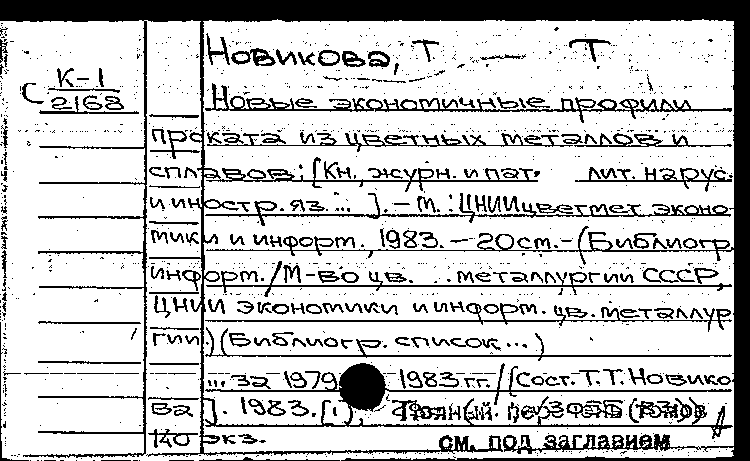 Новикова, Т Т
С К-1
2168
Новые экономичные профили
проката из цветных металлов и
сплавов: [Кн., журн. и пат. лит. на рус.
и иностр. яз. ... ]. - М. : ЦНИИцветмет эконо-
мики и информ., 1983. - 20см. - (Библиогр.
информ. / М-во цв. металлургии СССР,
ЦНИИ экономики и информ. цв. металлур-
гии.) (Библиогр. список...)
... за 1979 1983 гг. / [Сост. Т.Т. Новико-
ва]. 1983. Полный перечень томов
140 экз. см. под заглавием